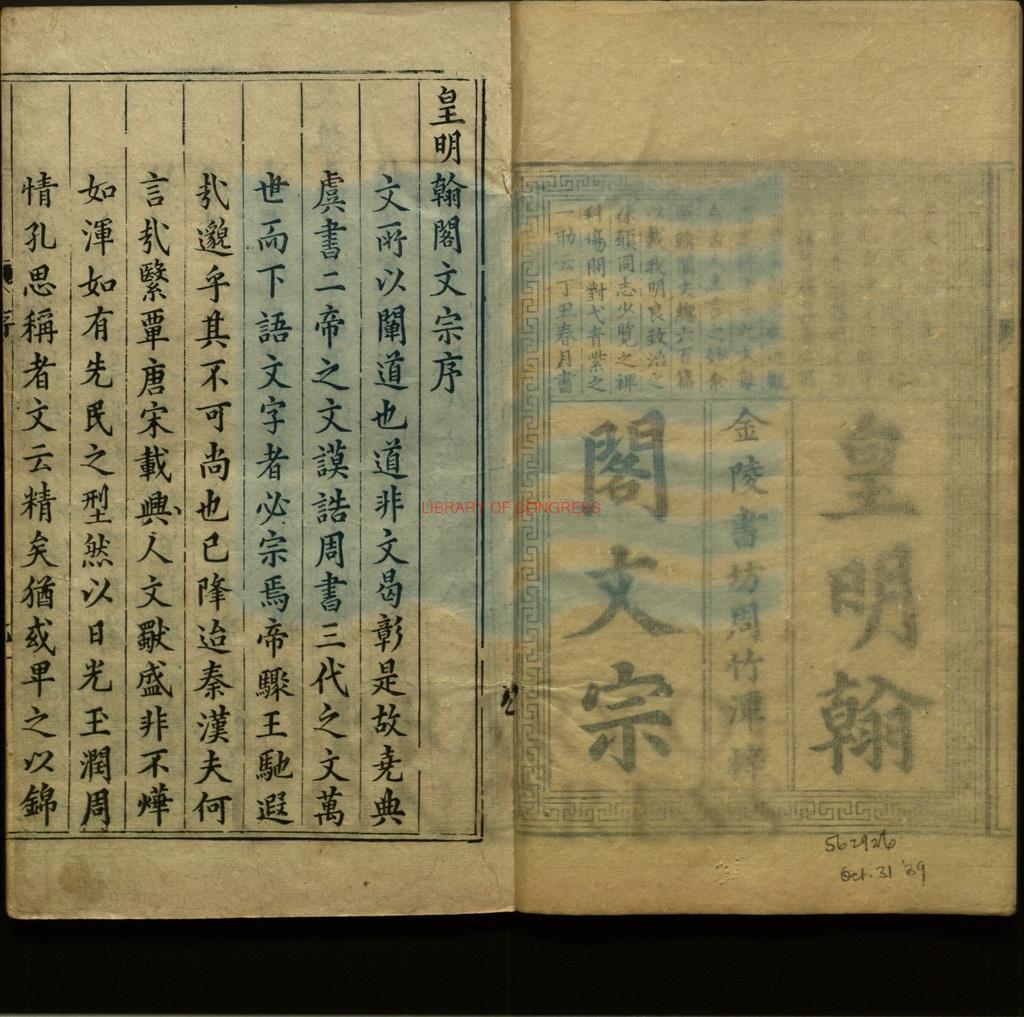 皇明翰
閣文宗
金陵書坊周竹潭梓
以載我明良致治之
休願同志少覽之裨
科塲開對弋青紫之
一助云丁丑春月書
562926
Oct. 31 '39
LIBRARY OF CONGRESS
皇明翰閣文宗序
文所以闡道也道非文曷彰是故堯典
虞書二帝之文謨誥周書三代之文萬
世而下語文字者必宗焉帝驟王馳遐
㢤邈乎其不可尚也已降迨秦漢夫何
言㢤繄覃唐宋載興人文猷盛非不燁
如渾如有先民之型然以日光玉潤周
情孔思稱者文云精矣猶或卑之以錦